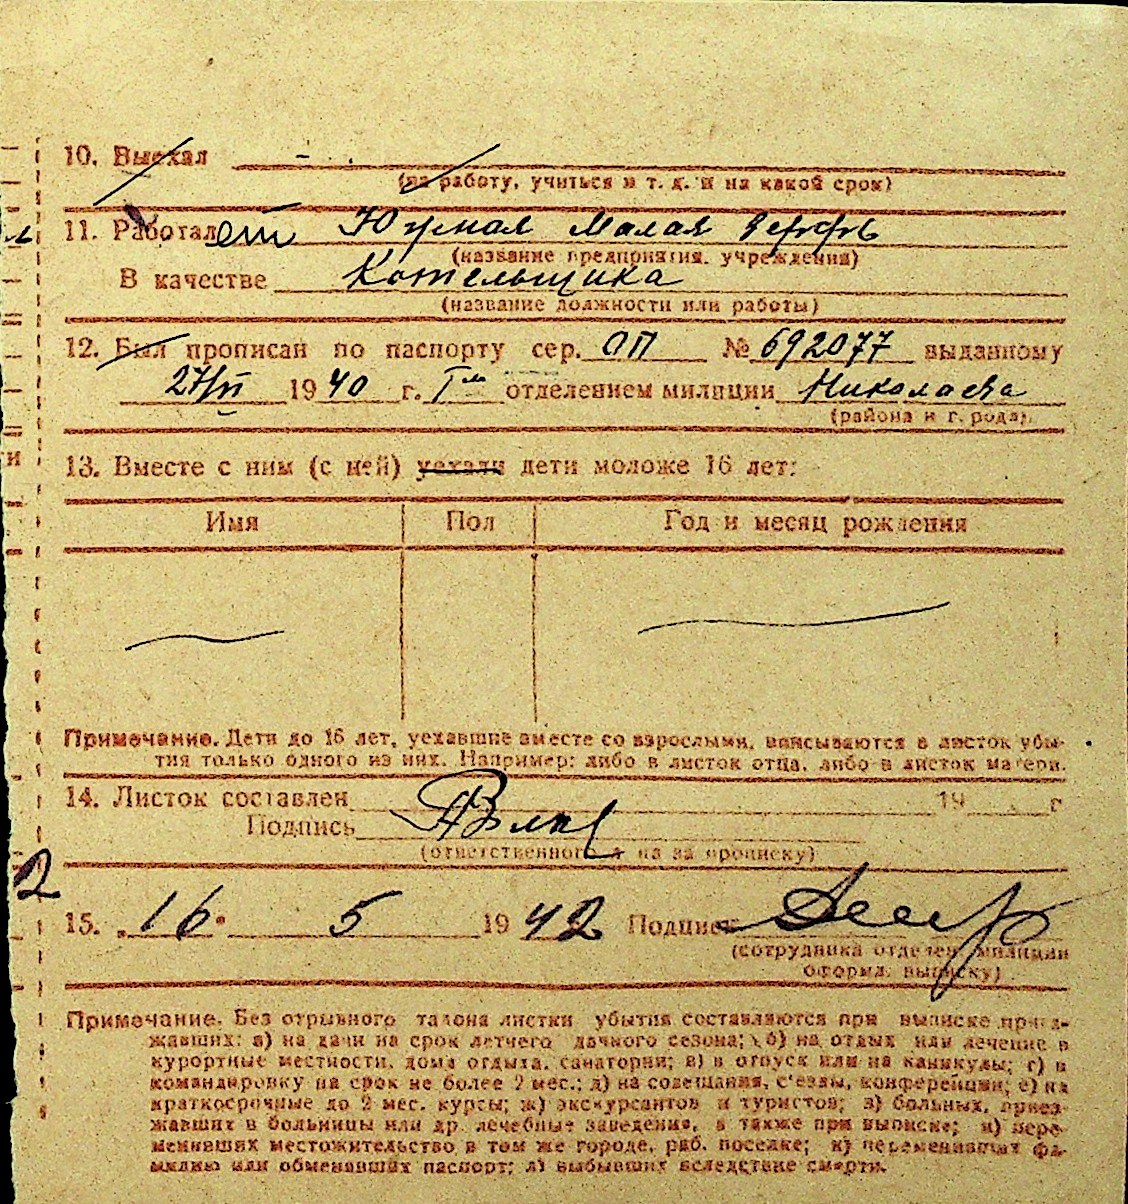 10. Выехал
(на работу, учиться и т. д. и на какой срок)
11. Работает Южная Малая верфь
(название предприятия, учреждения)
В качестве Котельщика
(название должности или работы)
12. Был прописан по паспорту сер. ОП № 692077 выданному
27/VI 1940 г. I м отделением милиции Николаева
(района и г. рода).
13. Вместе с ним (с ней) уехали дети моложе 16 лет:
Имя Пол Год и месяц рождения
Примечание. Дети до 16 лет, уехавшие вместе со взрослыми, вписываются в листок убы-
тия только одного из них. Например: либо в листок отца, либо в листок матери.
14. Листок составлен 19 г
Подпись
(ответственного за прописку)
2
15. „16" 5 1942 Подпись
(сотрудника отделен. милиции
оформл. выписку)
Примечание. Без отрывного талона листки убытия составляются при выписке приез-
жавших: а) на дачи на срок летнего дачного сезона; б) на отдых или лечение в
курортные местности, дома отдыха, санатории; в) в отпуск или на каникулы; г) в
командировку на срок не более 2 мес.; д) на совещания, с'езды, конференции; е) на
краткосрочные до 2 мес. курсы; ж) экскурсантов и туристов; з) больных, приез-
жавших в больницы или др. лечебные заведения, а также при выписке; и) пере-
менивших местожительство в том же городе, раб. поселке; к) переменивших фа-
милию или обменявших паспорт; л) выбывших вследствие смерти.